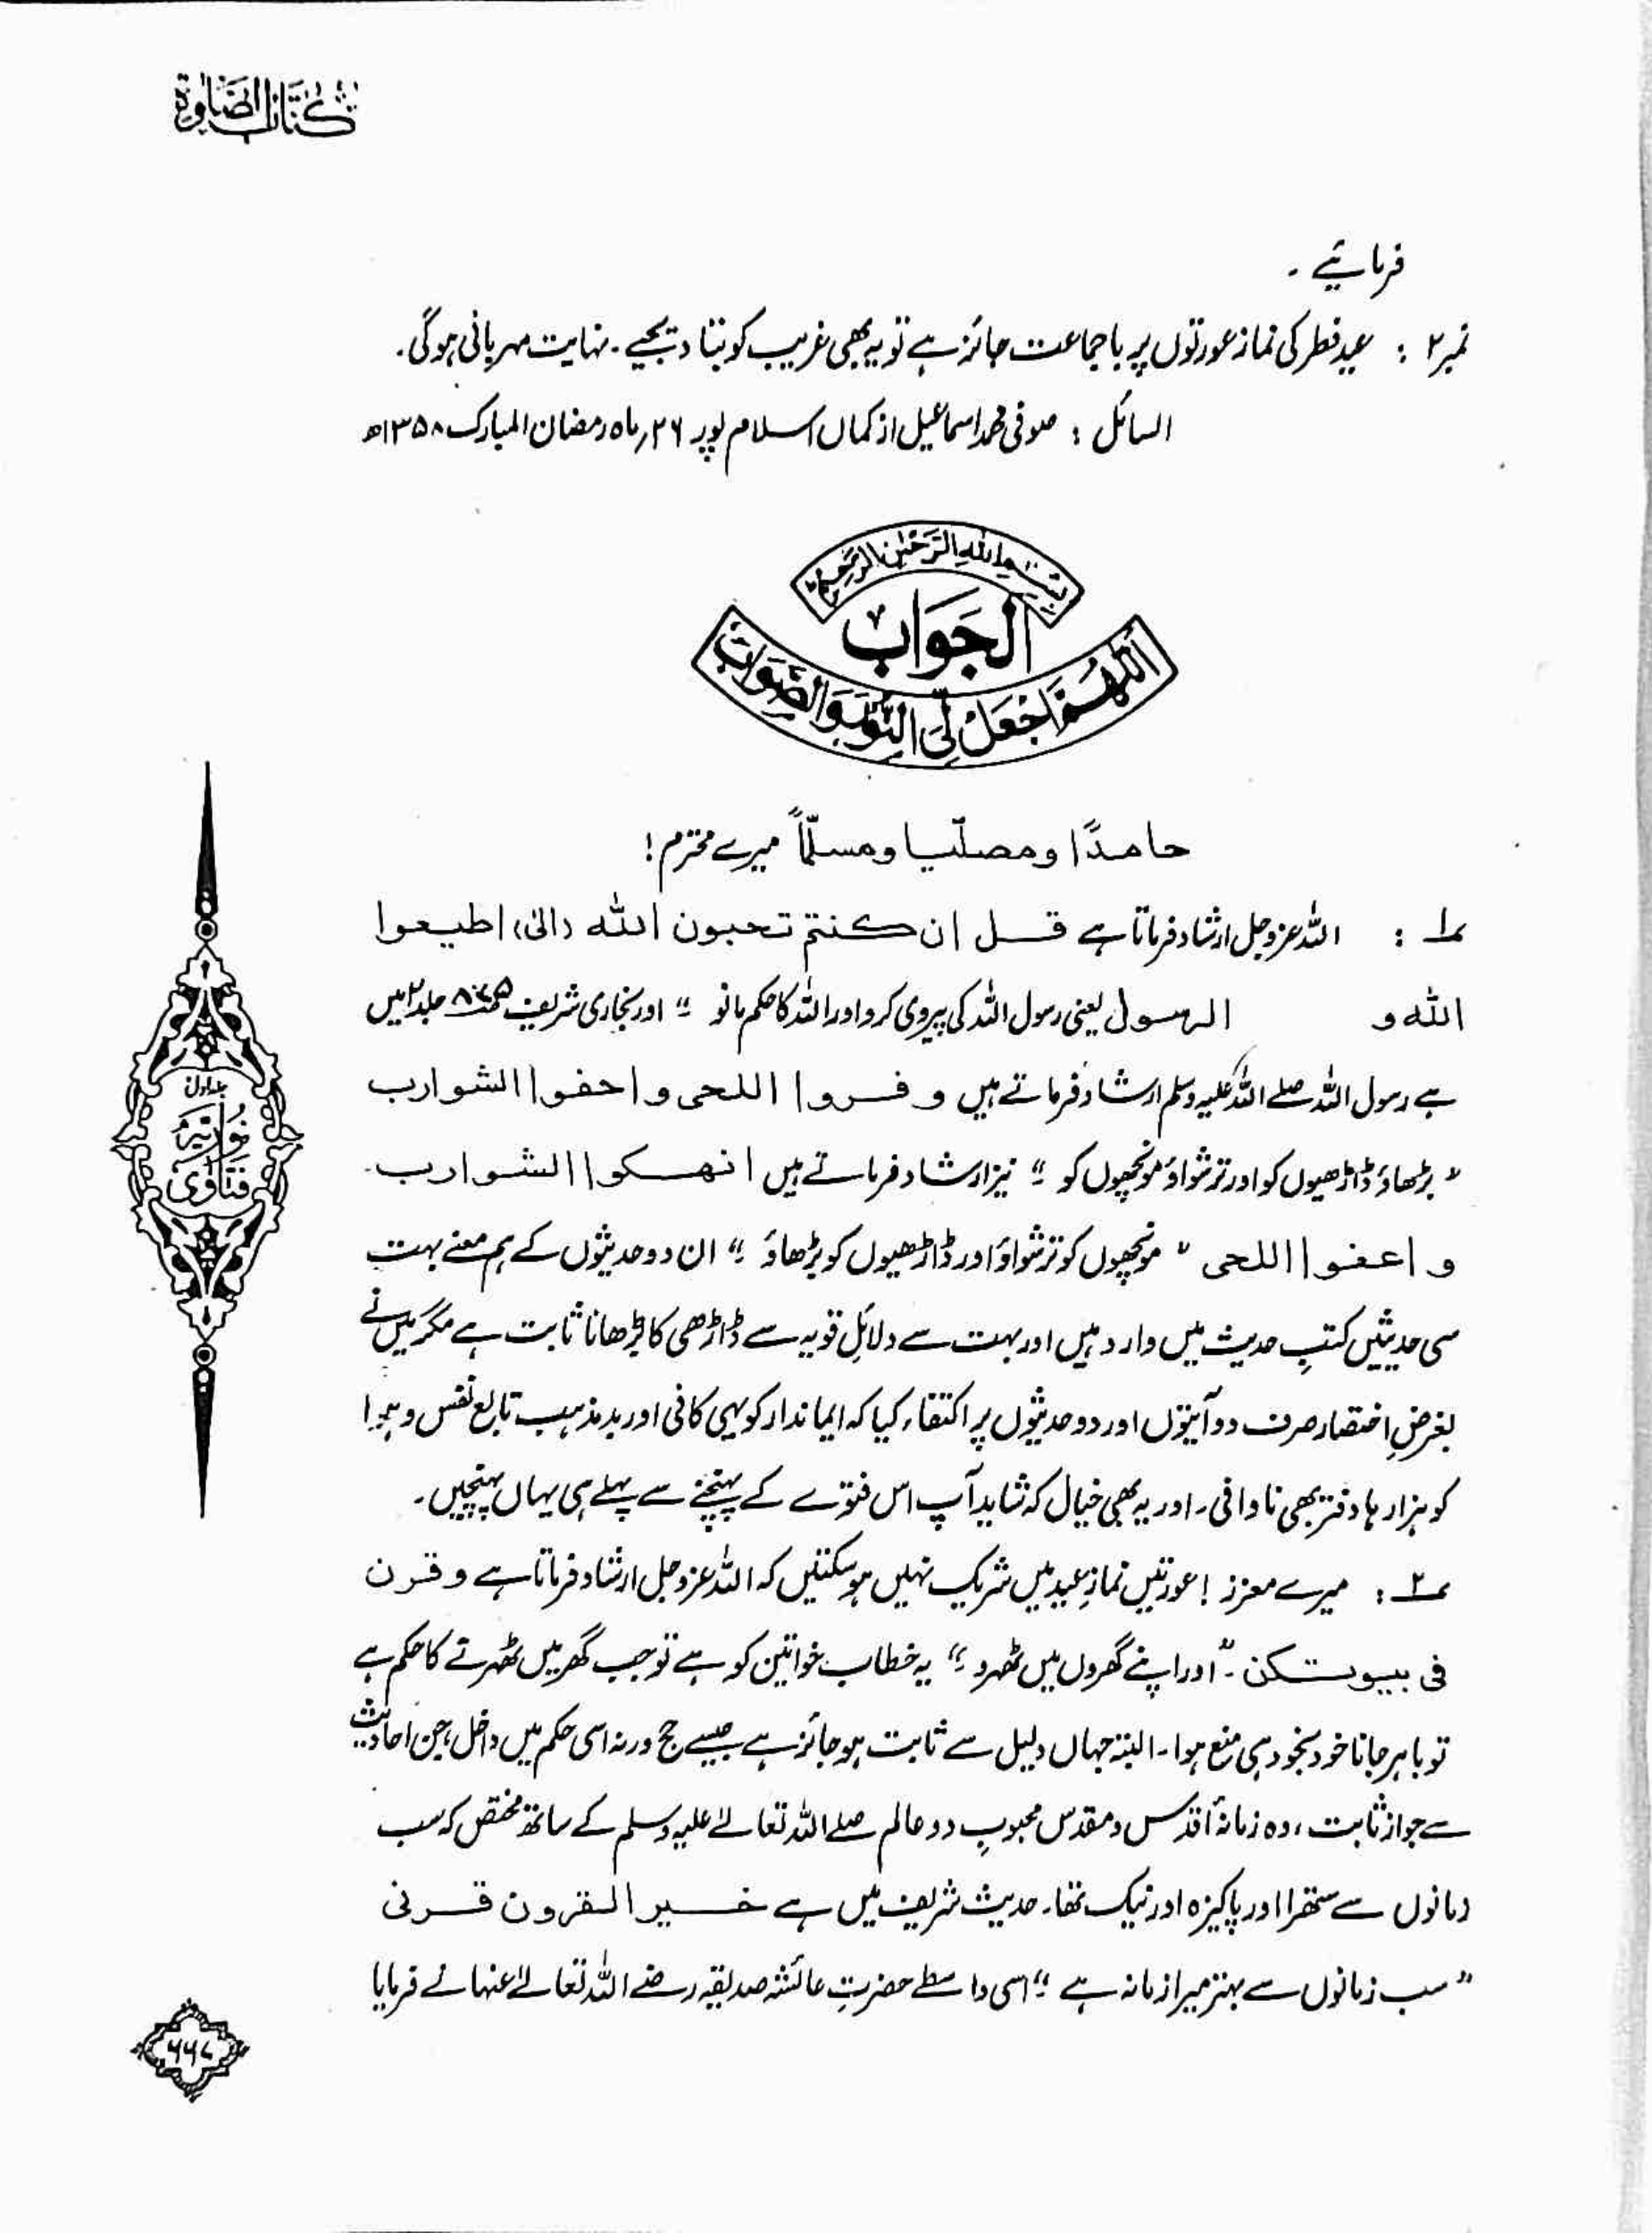 کتاب الصلوٰة
فرمائیے ۔
نمبر۲ : عید فطر کی نماز عورتوں پر باجماعت جائز ہے تو یہ بھی غریب کو بتا دیجیے ۔ نہایت مہربانی ہوگی ۔
السائل : صوفی محمد اسماعیل از کماں اسلام پور ۲۶؍ ماہ رمضان المبارک ۱۳۵۸ھ
بِسْمِ اللهِ الرَّحْمٰنِ الرَّحِيْمِ
الجَوَابُ
اَللّٰهُمَّ اجْعَلْ لِيَ النُّوْرَ وَالصَّوَابَ
حامدًا ومصلّیا ومسلّماً میرے محترم !
۱ : اللہ عزوجل ارشاد فرماتا ہے قل ان کنتم تحبون اللہ (الیٰ) اطیعوا
اللہ و الرسول یعنی رسول اللہ کی پیروی کرو اور اللہ کا حکم مانو ‘‘ اور بخاری شریف ص۸۷۵ جلد ۲ میں
ہے رسول اللہ صلے اللہ علیہ وسلم ارشاد فرماتے ہیں وفروا اللحی واحفوا الشوارب
’’ بڑھاؤ ڈاڑھیوں کو اور ترشواؤ مونچھوں کو ‘‘ نیز ارشاد فرماتے ہیں انهکوا الشوارب ۔
واعفوا اللحی ’’ مونچھوں کو ترشواؤ اور ڈاڑھیوں کو بڑھاؤ ‘‘ ان دو حدیثوں کے ہم معنے بہت
سی حدیثیں کتبِ حدیث میں وارد ہیں اور بہت سے دلائلِ قویہ سے ڈاڑھی کا بڑھانا ثابت ہے مگر میں نے
بغرضِ اختصار صرف دو آیتوں اور دو حدیثوں پر اکتفاء کیا کہ ایماندار کو یہی کافی اور بد مذہب تابع نفس و ہوا
کو ہزارہا دفتر بھی ناوافی ۔ اور یہ بھی خیال کہ شاید آپ اس فتوے کے پہنچنے سے پہلے ہی یہاں پہنچیں ۔
۲ : میرے معزز ! عورتیں نمازِ عید میں شریک نہیں ہو سکتیں کہ اللہ عزوجل ارشاد فرماتا ہے وقرن
فی بیوتکن ۔ ’’ اور اپنے گھروں میں ٹھہرو ‘‘ یہ خطاب خواتین کو ہے تو جب گھر میں ٹھہرنے کا حکم ہے
تو باہر جانا خود بخود ہی منع ہوا ۔ البتہ جہاں دلیل سے ثابت ہو جائز ہے جیسے حج ورنہ اسی حکم میں داخل ، جن احادیث
سے جواز ثابت ، وہ زمانۂ اقدس و مقدس محبوبِ دو عالم صلے اللہ تعالےٰ علیہ وسلم کے ساتھ مختص کہ سب
زمانوں سے ستھرا اور پاکیزہ اور نیک تھا ۔ حدیث شریف میں ہے خیر القرون قرنی
’’ سب زمانوں سے بہتر میرا زمانہ ہے ‘‘ اسی واسطے حضرتِ عائشہ صدیقہ رضے اللہ تعالےٰ عنہا نے فرمایا
جلد اول
فتاوی نوریہ
۶۶۷